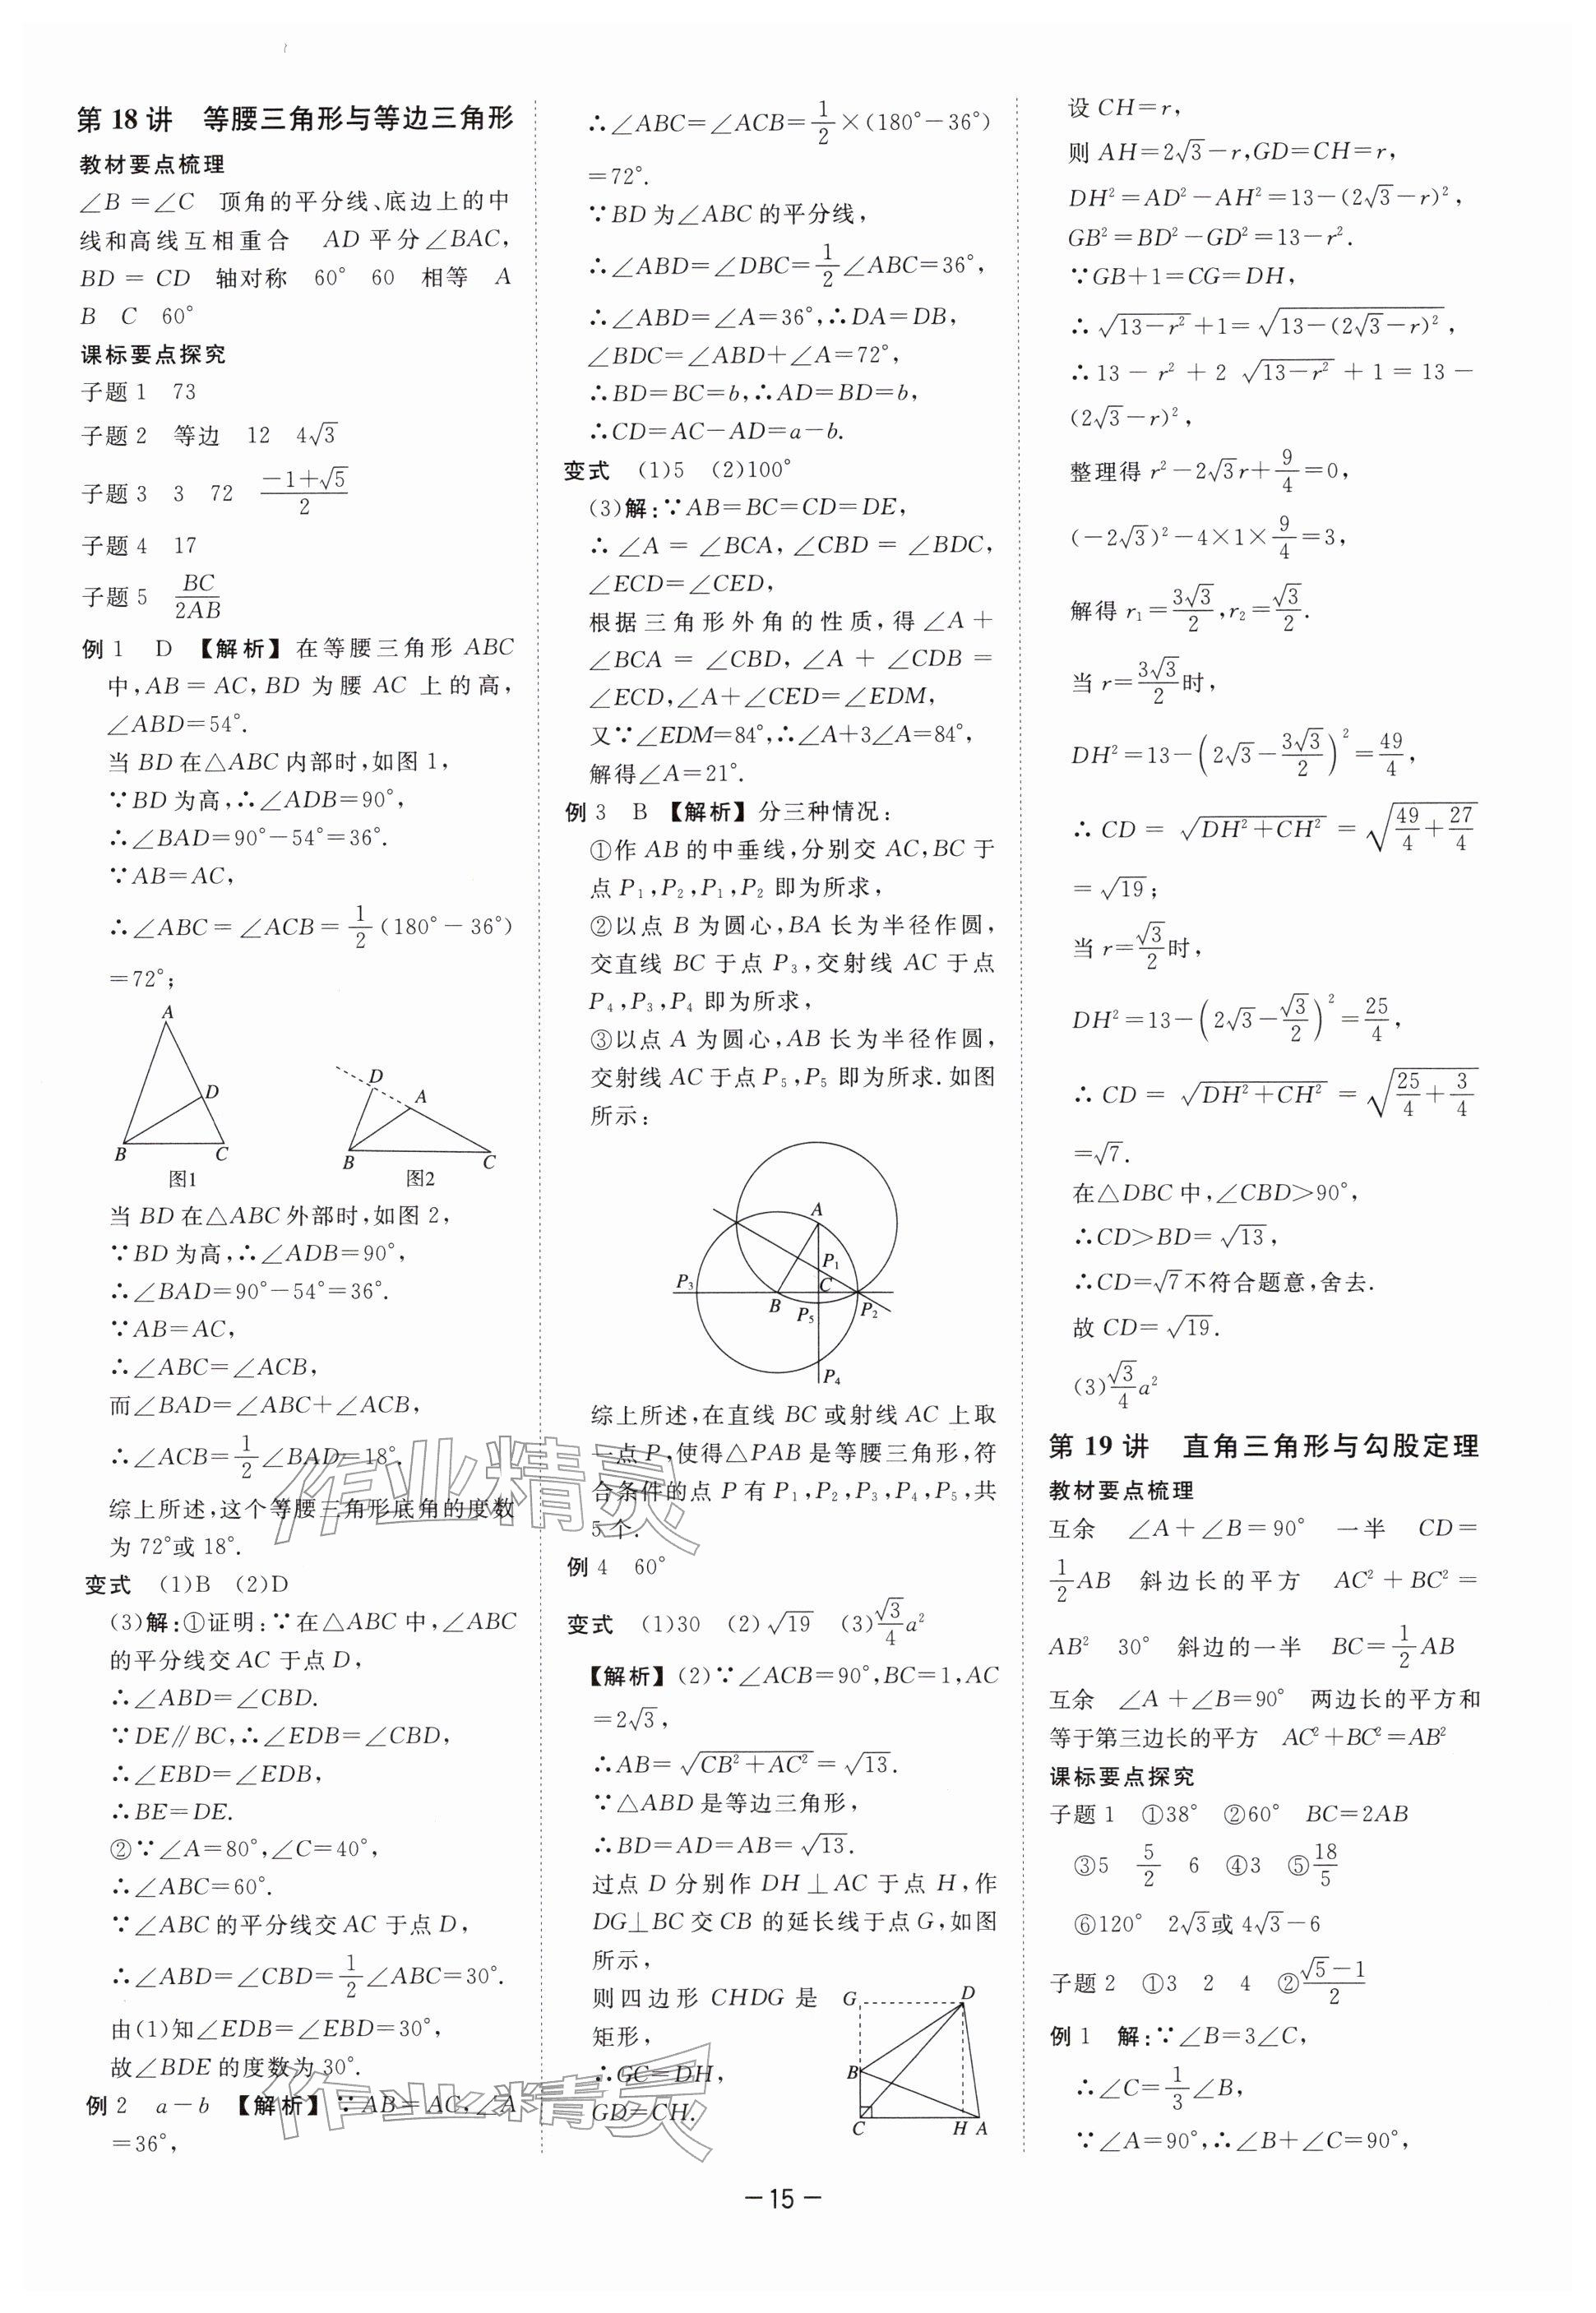 第 18 讲　等腰三角形与等边三角形
教材要点梳理
∠B =∠C　顶角的平分线、底边上的中
线和高线互相重合　AD 平分∠BAC,
BD = CD　轴对称　60°　60　相等　A
B　C　60°
课标要点探究
子题 1　73
子题 2　等边　12　4√3
子题 3　3　72　(-1+√5)/2
子题 4　17
子题 5　BC/2AB
例 1　D　【解析】在等腰三角形 ABC
中,AB = AC, BD 为腰 AC 上的高,
∠ABD=54°.
当 BD 在△ABC 内部时,如图 1,
∵BD 为高,∴∠ADB=90°,
∴∠BAD=90°-54°=36°.
∵AB=AC,
∴∠ABC = ∠ACB = 1/2 (180° - 36°)
=72°;
A
D
B
C
图1
D
A
B
C
图2
当 BD 在△ABC 外部时,如图 2,
∵BD 为高,∴∠ADB=90°,
∴∠BAD=90°-54°=36°.
∵AB=AC,
∴∠ABC=∠ACB,
而∠BAD=∠ABC+∠ACB,
∴∠ACB=1/2∠BAD=18°.
综上所述,这个等腰三角形底角的度数
为 72°或 18°.
变式　(1)B　(2)D
(3)解:①证明:∵在△ABC 中,∠ABC
的平分线交 AC 于点 D,
∴∠ABD=∠CBD.
∵DE∥BC,∴∠EDB=∠CBD,
∴∠EBD=∠EDB,
∴BE=DE.
②∵∠A=80°,∠C=40°,
∴∠ABC=60°.
∵∠ABC 的平分线交 AC 于点 D,
∴∠ABD=∠CBD=1/2∠ABC=30°.
由(1)知∠EDB=∠EBD=30°,
故∠BDE 的度数为 30°.
例 2　a-b　【解析】∵AB=AC,∠A
=36°,
∴∠ABC=∠ACB=1/2×(180°-36°)
=72°.
∵BD 为∠ABC 的平分线,
∴∠ABD=∠DBC=1/2∠ABC=36°,
∴∠ABD=∠A=36°,∴DA=DB,
∠BDC=∠ABD+∠A=72°,
∴BD=BC=b,∴AD=BD=b,
∴CD=AC-AD=a-b.
变式　(1)5　(2)100°
(3)解:∵AB=BC=CD=DE,
∴ ∠A = ∠BCA, ∠CBD = ∠BDC,
∠ECD=∠CED,
根据三角形外角的性质,得∠A+
∠BCA = ∠CBD, ∠A + ∠CDB =
∠ECD,∠A+∠CED=∠EDM,
又∵∠EDM=84°,∴∠A+3∠A=84°,
解得∠A=21°.
例 3　B　【解析】分三种情况:
①作 AB 的中垂线,分别交 AC,BC 于
点 P₁,P₂,P₁,P₂ 即为所求,
②以点 B 为圆心,BA 长为半径作圆,
交直线 BC 于点 P₃,交射线 AC 于点
P₄,P₃,P₄ 即为所求,
③以点 A 为圆心,AB 长为半径作圆,
交射线 AC 于点 P₅,P₅ 即为所求.如图
所示:
A
P₁
P₃
C
B
P₅
P₂
P₄
综上所述,在直线 BC 或射线 AC 上取
一点 P,使得△PAB 是等腰三角形,符
合条件的点 P 有 P₁,P₂,P₃,P₄,P₅,共
5 个.
例 4　60°
变式　(1)30　(2)√19　(3)√3/4 a²
【解析】(2)∵∠ACB=90°,BC=1,AC
=2√3,
∴AB=√(CB²+AC²)=√13.
∵△ABD 是等边三角形,
∴BD=AD=AB=√13.
过点 D 分别作 DH⊥AC 于点 H,作
DG⊥BC 交 CB 的延长线于点 G,如图
所示,
则四边形 CHDG 是
矩形,
∴GC=DH,
GD=CH.
G
D
B
C
H
A
设 CH=r,
则 AH=2√3-r,GD=CH=r,
DH²=AD²-AH²=13-(2√3-r)²,
GB²=BD²-GD²=13-r².
∵GB+1=CG=DH,
∴√(13-r²)+1=√(13-(2√3-r)²),
∴13 - r² + 2 √(13-r²) + 1 = 13 -
(2√3-r)²,
整理得 r²-2√3r+9/4=0,
(-2√3)²-4×1×9/4=3,
解得 r₁=3√3/2,r₂=√3/2.
当 r=3√3/2时,
DH²=13-(2√3-3√3/2)²=49/4,
∴ CD = √(DH²+CH²) = √(49/4+27/4)
=√19;
当 r=√3/2时,
DH²=13-(2√3-√3/2)²=25/4,
∴ CD = √(DH²+CH²) = √(25/4+3/4)
=√7.
在△DBC 中,∠CBD>90°,
∴CD>BD=√13,
∴CD=√7不符合题意,舍去.
故 CD=√19.
(3)√3/4 a²
第 19 讲　直角三角形与勾股定理
教材要点梳理
互余　∠A+∠B=90°　一半　CD=
1/2AB　斜边长的平方　AC²+BC²=
AB²　30°　斜边的一半　BC=1/2AB
互余　∠A+∠B=90°　两边长的平方和
等于第三边长的平方　AC²+BC²=AB²
课标要点探究
子题 1　①38°　②60°　BC=2AB
③5　5/2　6　④3　⑤18/5
⑥120°　2√3或 4√3-6
子题 2　①3　2　4　②(√5-1)/2
例 1　解:∵∠B=3∠C,
∴∠C=1/3∠B,
∵∠A=90°,∴∠B+∠C=90°,
作业精灵
作业精灵
— 15 —